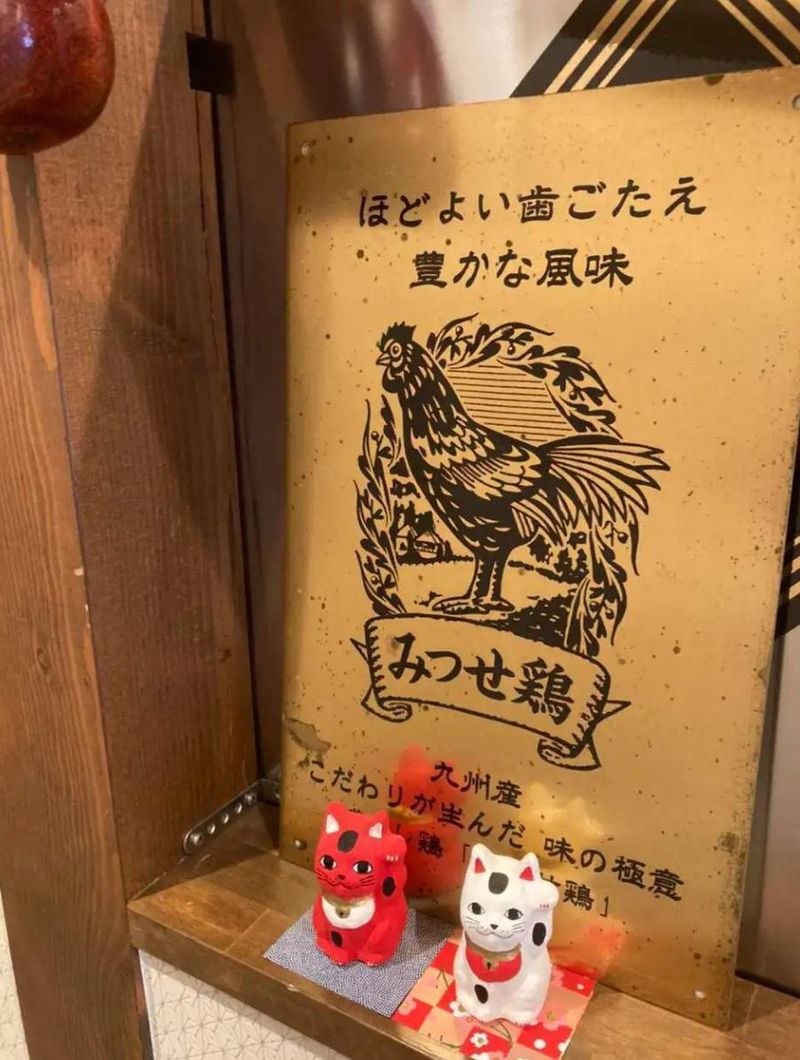 ほどよい歯ごたえ
豊かな風味
みつせ鶏
九州産
こだわりが生んだ 味の極意
鶏「 鶏」